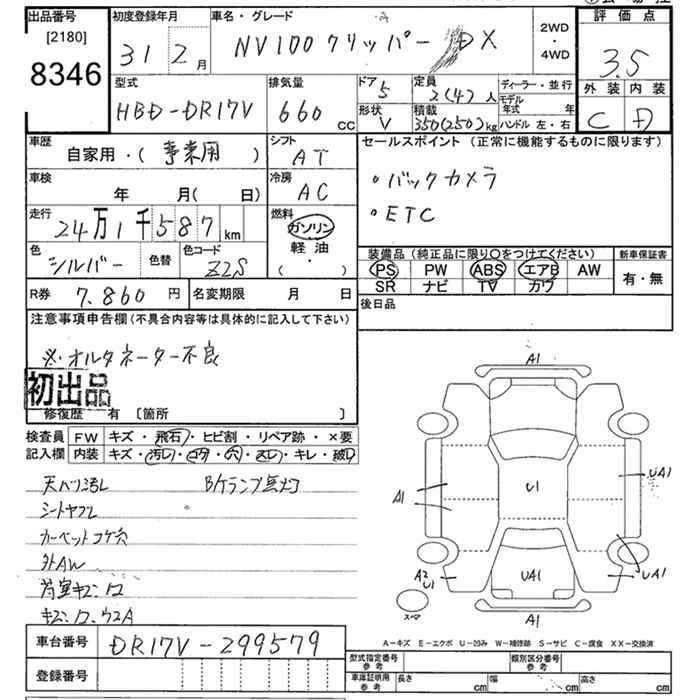 出品番号
[2180]
8346
初度登録年月
31年 2月
車名・グレード
NV100クリッパー DX
2WD
・
4WD
評価点
3.5
外装 内装
C D
型式
HBD-DR17V
排気量
660 CC
ドア 5
形状 V
定員 2(4)人
積載 350(250)kg
ディーラー・並行
モデル年式 年
ハンドル 左・右
車歴
自家用・(事業用)
シフト
AT
車検
年 月(日)
冷房
AC
走行
24万1千587km
燃料
ガソリン
軽油
(・)
色
シルバー
色替
色コード
Z2S
R券 7.860円
名変期限 月 日
セールスポイント (正常に機能するものに限ります)
・バックカメラ
・ETC
装備品(純正品に限り○をつけてください)
PS PW ABS エアB AW
SR ナビ TV カワ
新車保証書
有・無
後日品
注意事項申告欄(不具合内容等は具体的に記入して下さい)
※・オルタネーター不良
初出品
修復歴 有 〔箇所 〕
検査員 FW キズ・飛石・ヒビ割・リペア跡・×要
記入欄 内装 キズ・汚レ・コゲ・穴・スレ・キレ・破レ
天ハリ汚レ Bケランプ点灯
シートヤブレ
カーペットコゲ穴
外AW
荷室キズ
車台番号 DR17V-299579
登録番号
A1
A1
U1
UA1
UA1
A2
U1
UA1
A1
スペア
A-キズ E-エクボ U-凹み W-補修跡 S-サビ C-腐食 XX-交換済
型式指定番号
参考
類別区分番号
参考
車庫証明用
参考
長さ cm 幅 cm 高さ cm